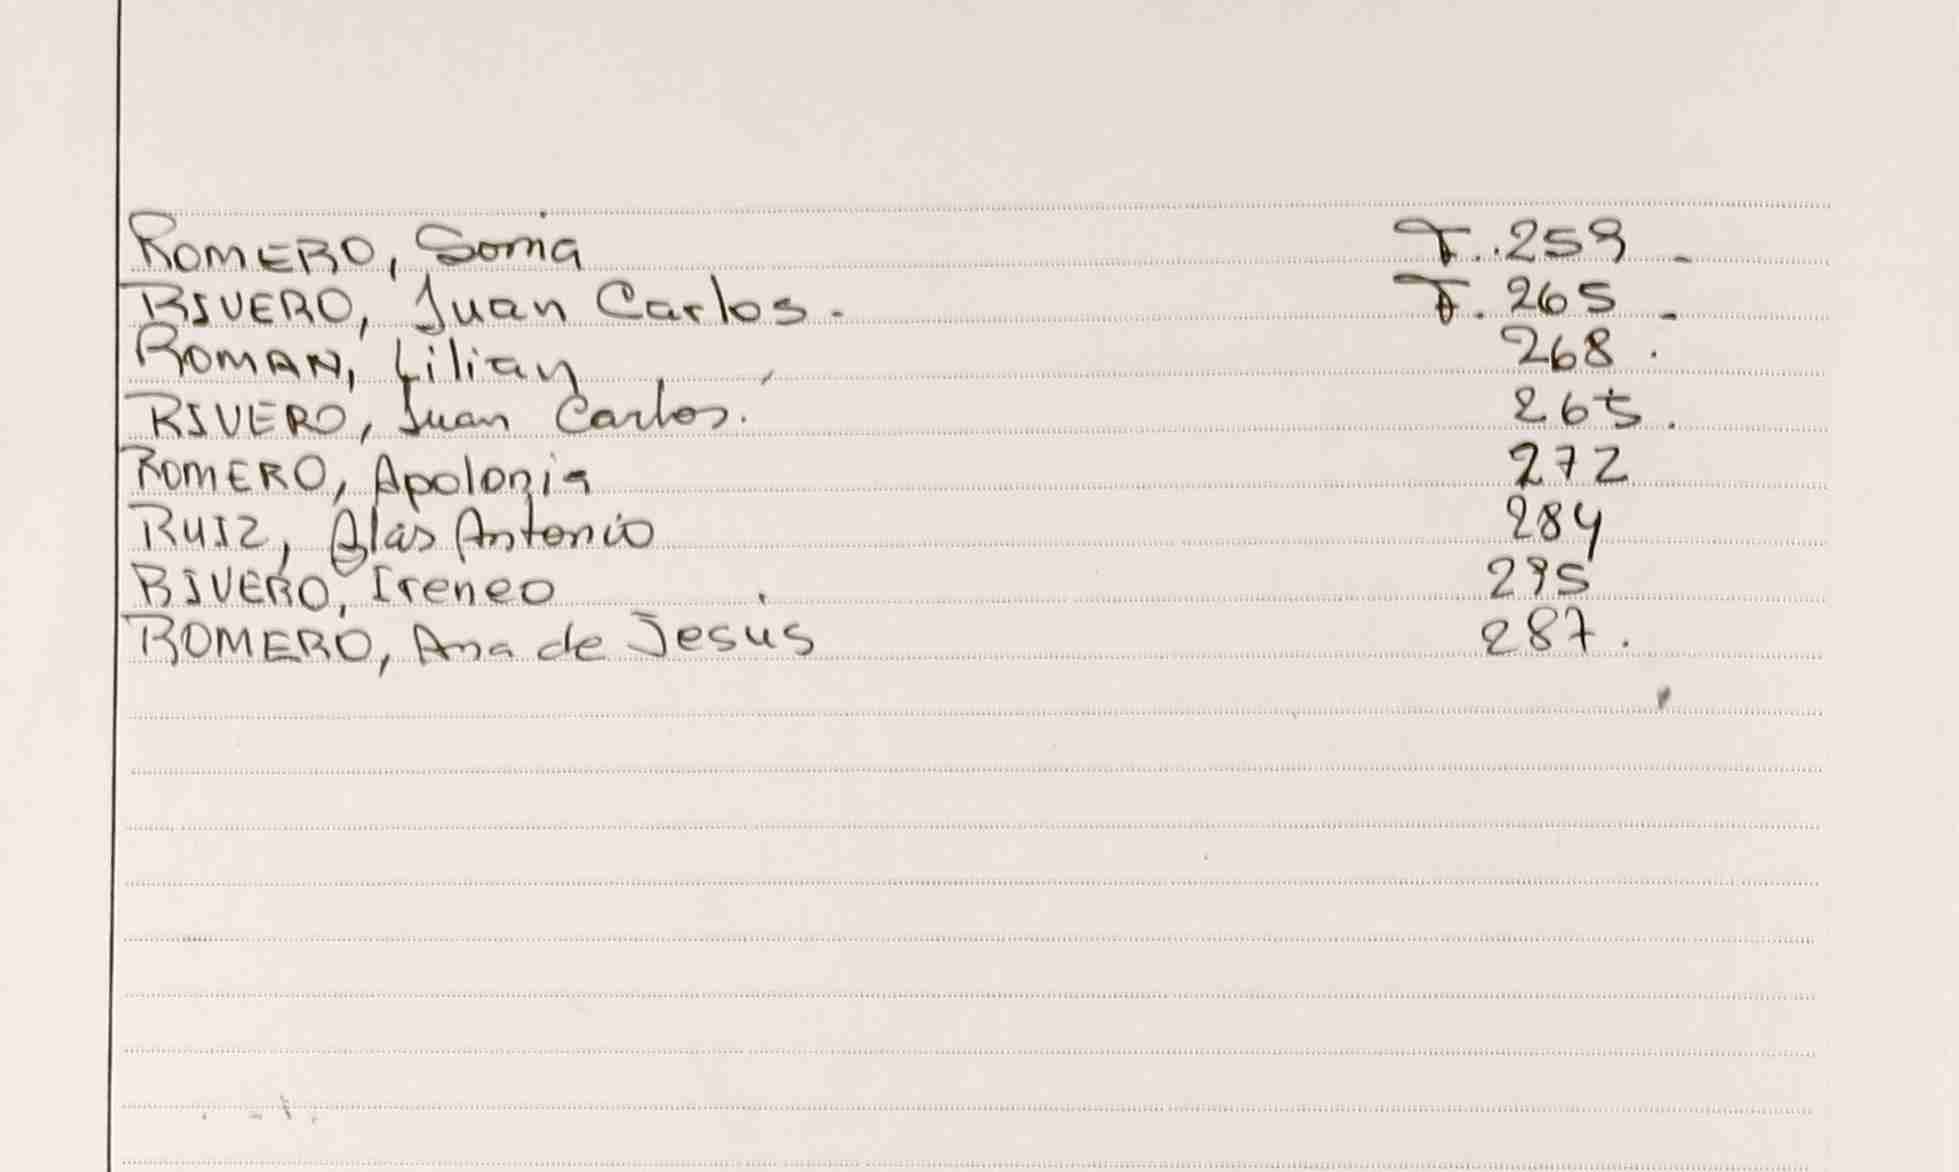 ROMERO, Sonia F. 259 -
RIVERO, Juan Carlos. - F. 265 -
ROMAN, Lilian 268 .
RIVERO, Juan Carlos. 265 .
ROMERO, Apolonia 272
RUIZ, Blas Antonio 284
RIVERO, Ireneo 295
ROMERO, Ana de Jesús 287 .